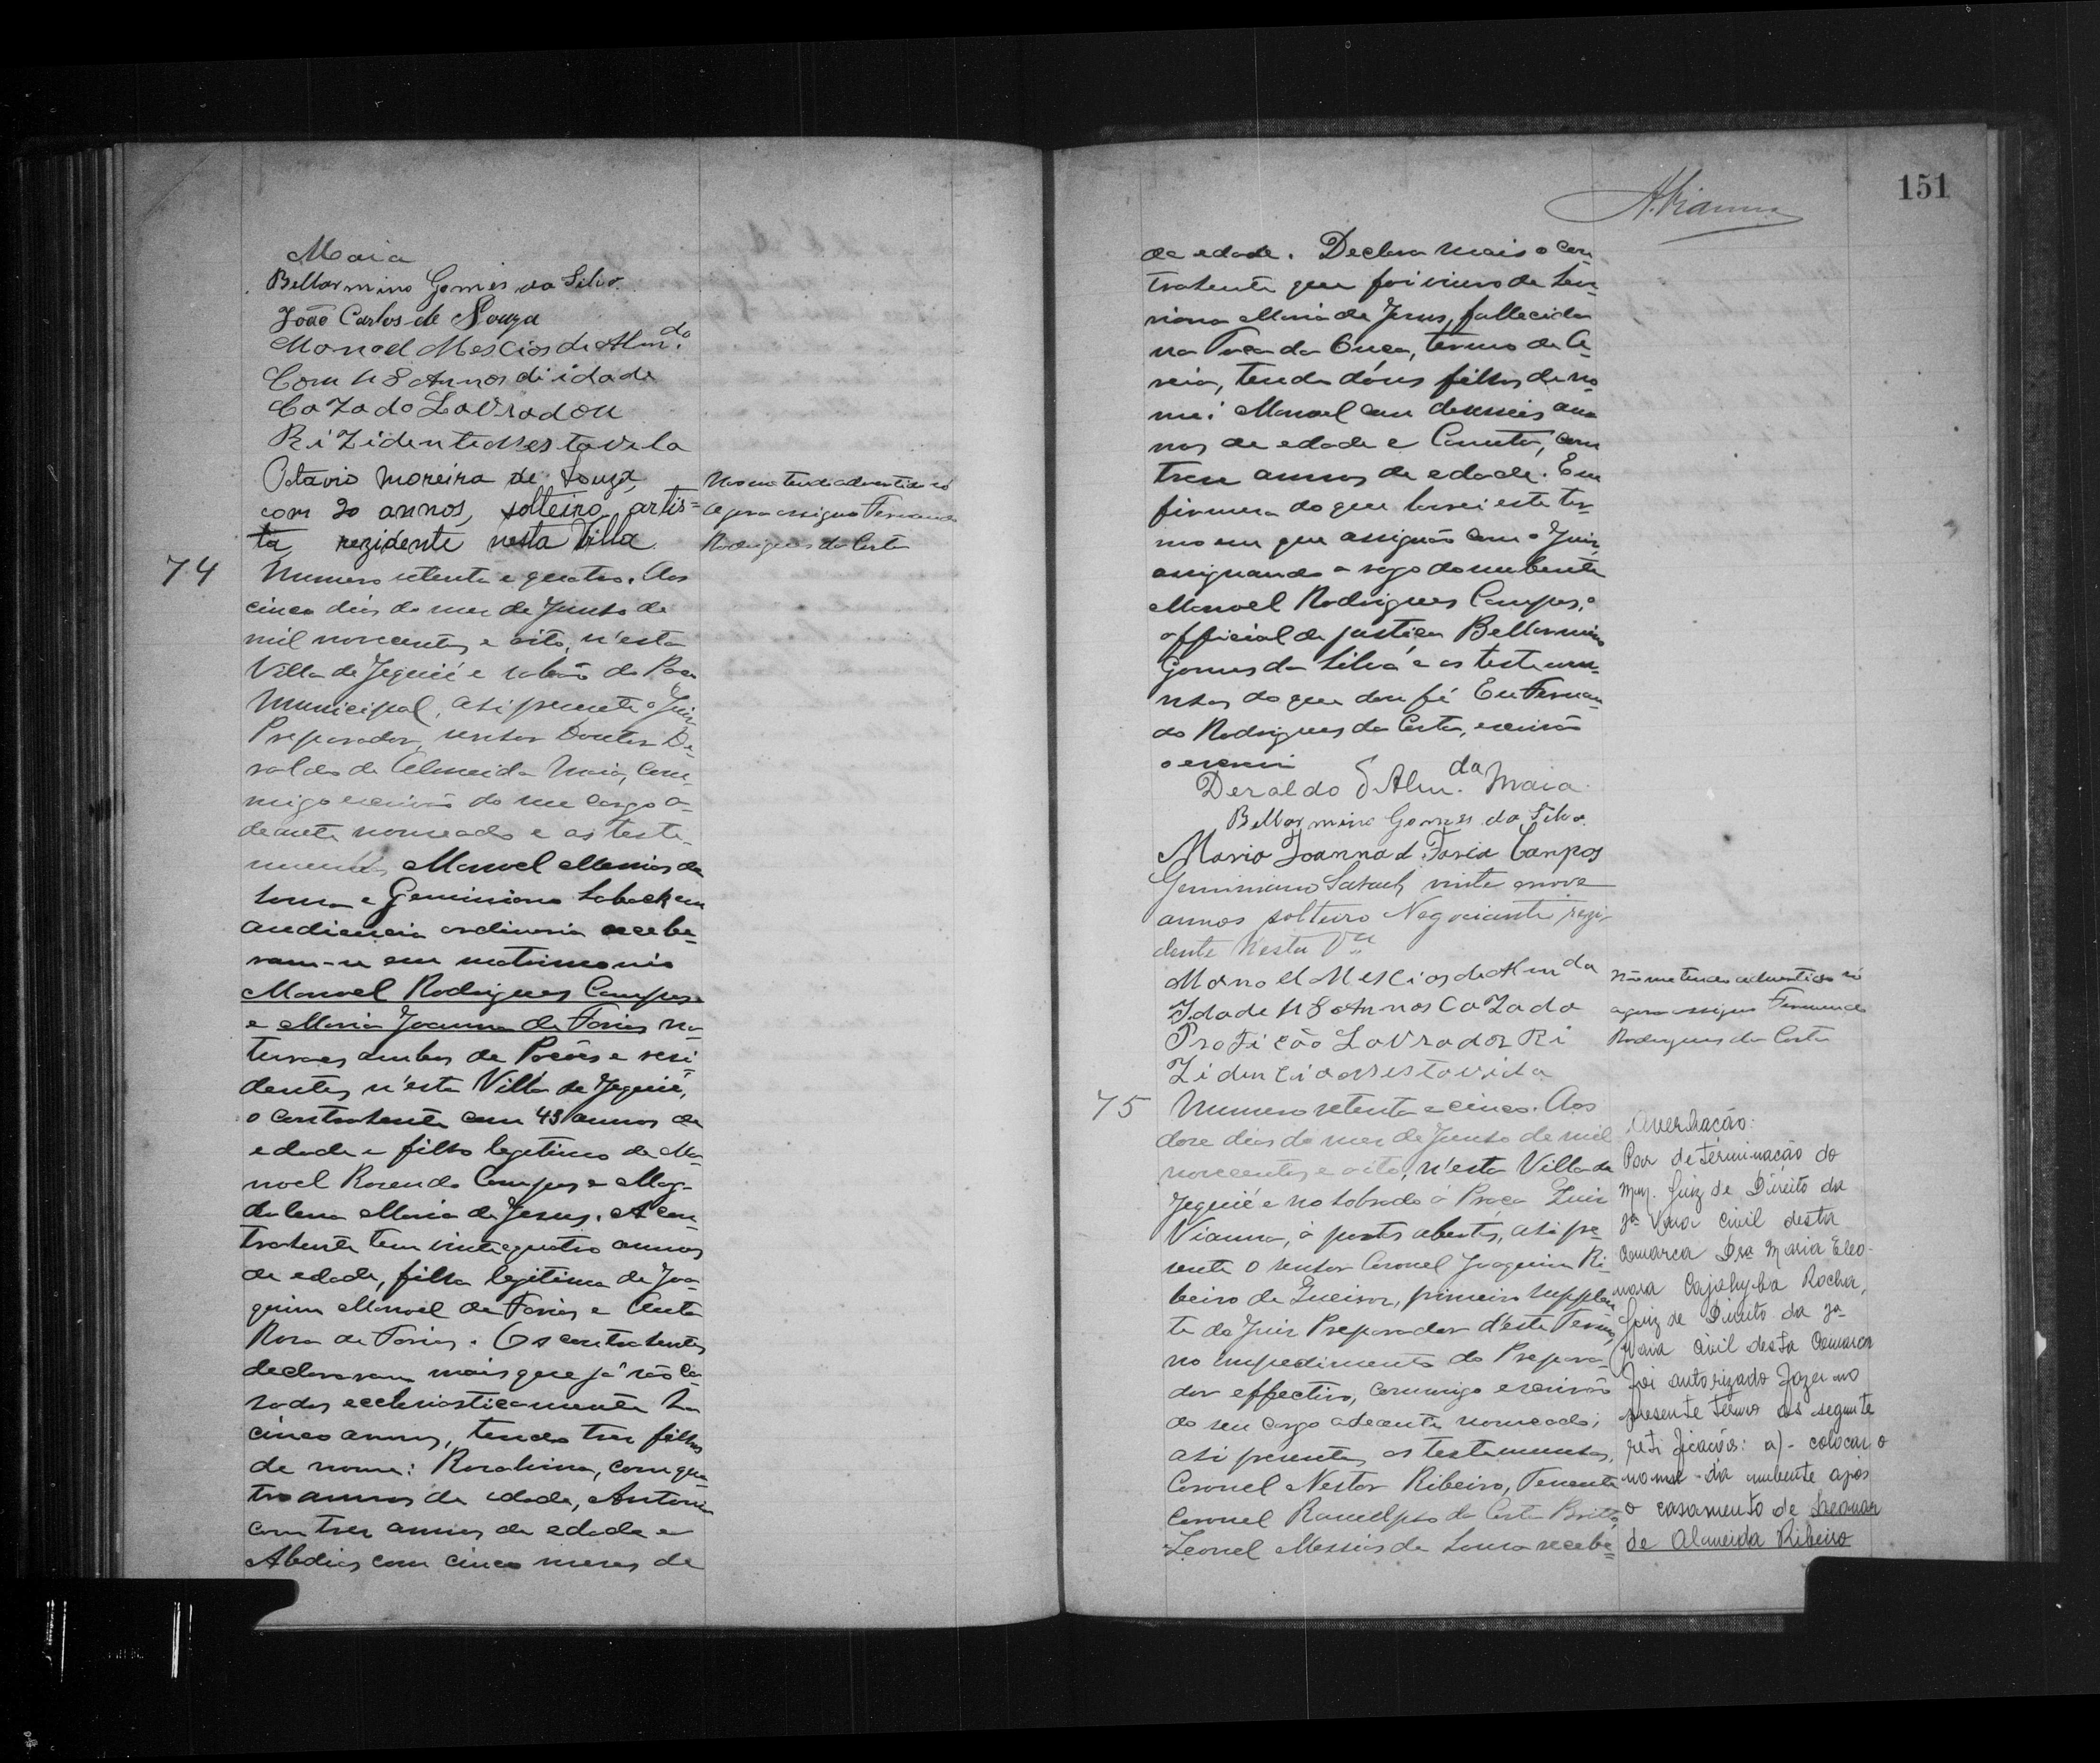 Maia
Bellarmino Gomes da Silva.
João Carlos de Souza
Manoel Mescias de Alm.da
Com 48 Annos di idade
CaZado LavradoR
RiZidente nestavila
Octavio Moreira de Souza,
com 20 annos, solteiro, artis=
ta, rezidente nesta Villa
Não me tendo advertido só
agora assigno Fernando
Rodrigues da Costa
74
Numero setenta e quatro. Aos
cinco dias do mez de Junho de
mil novecentos e oito, n'esta
Villa de Jequié e salão do Paço
Municipal, ahi presente o Juiz
Preparador, senhor Doutor De-
raldo de Almeida Maia, com-
migo escrivão do seu cargo a-
deante nomeado e as teste-
munhas Manoel Messias de
Souza e Geminiano Saback em
audiencia ordinaria recebe-
ram-se em matrimonio
Manoel Rodrigues Campos
e Maria Joanna de Farias na-
turaes ambos de Poções e resi-
dentes n'esta Villa de Jequié,
o contrahente com 43 annos de
edade e filho legitimo de Ma-
noel Rosendo Campos e Mag-
dalena Maria de Jesus. A con-
trahente tem vinte e quatro annos
de edade, filha legitima de Joa-
quim Manoel de Farias e Anta
Rosa de Farias. Os contrahentes
declararam mais que já são ca-
sados ecclesiasticamente ha
cinco annos, tendo tres filhos
de nome: Rosalina, com qua-
tro annos de edade, Antonio
com tres annos de edade e
Abdias com cinco mezes de
151
A. Vianna
de edade. Declara mais o con-
trahente que foi viuvo de
Maria de Jesus, fallecida
na Toca da Onça, termo de A-
reia, tendo dous filhos de no-
me: Manoel com deseseis an-
nos de edade e Canuta, com
treze annos de edade. Em
firmesa do que lavrei este ter-
mo em que assignão com o Juiz
assignando a rogo do nubente
Manoel Rodrigues Campos, o
official de justiça Bellarmino
Gomes da Silva e as testemu-
nhas do que dou fé Eu Fernan-
do Rodrigues da Costa, escrivão
o escrevi
Deraldo d'Alm.da Maia
Bellarmino Gomes da Silva.
Maria Joanna d Faria Campos
Geminiano Saback, vinte e nove
annos solteiro Negociante rezi-
dente nesta Va
Manoel Mescias de Alm da
Idade 48 Annos CaZado
Profição LavradoR Ri
Zidencia nestavila
Não me tendo advertido só
agora assigno Fernando
Rodrigues da Costa
75
Numero setenta e cinco. Aos
doze dias do mez de Junho de mil
novecentos e oito, n'esta Villa de
Jequié e no sobrado á Praça Luiz
Vianna, á portas abertas, ahi pre-
sente o senhor Coronel Joaquim Ri-
beiro de Queiroz, primeiro supplen-
te do Juiz Preparador d'este Termo,
no impedimento do Prepara-
dor effectivo, commigo escrivão
do seu cargo adeante nomeado;
ahi presentes as testemunhas,
Coronel Nestor Ribeiro, Tenente
Coronel Ramulpho da Costa Britto
Leonel Messias de Souza recebe=
Averbação:
Por determinação do
Juiz de Direito da
Vara Civil desta
Comarca Dra Maria Eleo-
nora Cajahyba Rocha,
Juiz de Direito da
Vara Civil desta Comarca
foi autorizado fazer no
presente termo as seguinte
retificações: a)- colocar o
nome da nubente após
o casamento de Leonor
de Almeida Ribeiro